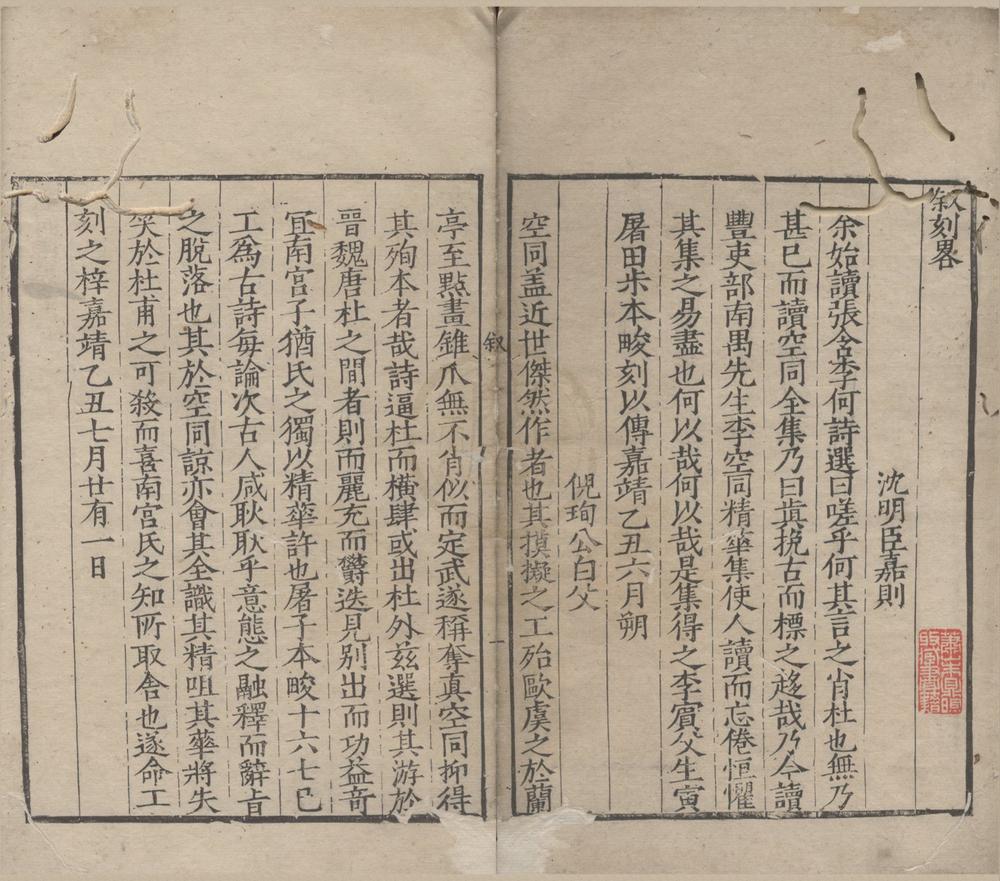 叙刻畧
沈明臣嘉則
余始讀張含李何詩選曰嗟乎何其言之肖杜也無乃
甚已而讀空同全集乃曰眞挽古而標之趍哉乃今讀
豐吏部南禺先生李空同精華集使人讀而忘倦恒懼
其集之易盡也何以哉何以哉是集得之李賓父生寅
屠田尗本畯刻以傳嘉靖乙丑六月朔
倪珣公白父
空同盖近世傑然作者也其摸擬之工殆歐虞之於蘭
叙
一
亭至點畫錐爪無不肖似而定武遂稱奪真空同抑得
其殉本者哉詩逼杜而橫肆或出杜外茲選則其游於
晉魏唐杜之間者則而麗充而欝迭見别出而功益竒
冝南宫子猶氏之獨以精華許也屠子本畯十六七已
工爲古詩每論次古人咸耿耿乎意態之融釋而辭㫖
之脫落也其於空同諒亦會其全識其精咀其華將失
笑於杜甫之可殺而喜南宫氏之知所取舍也遂命工
刻之梓嘉靖乙丑七月廿有一日